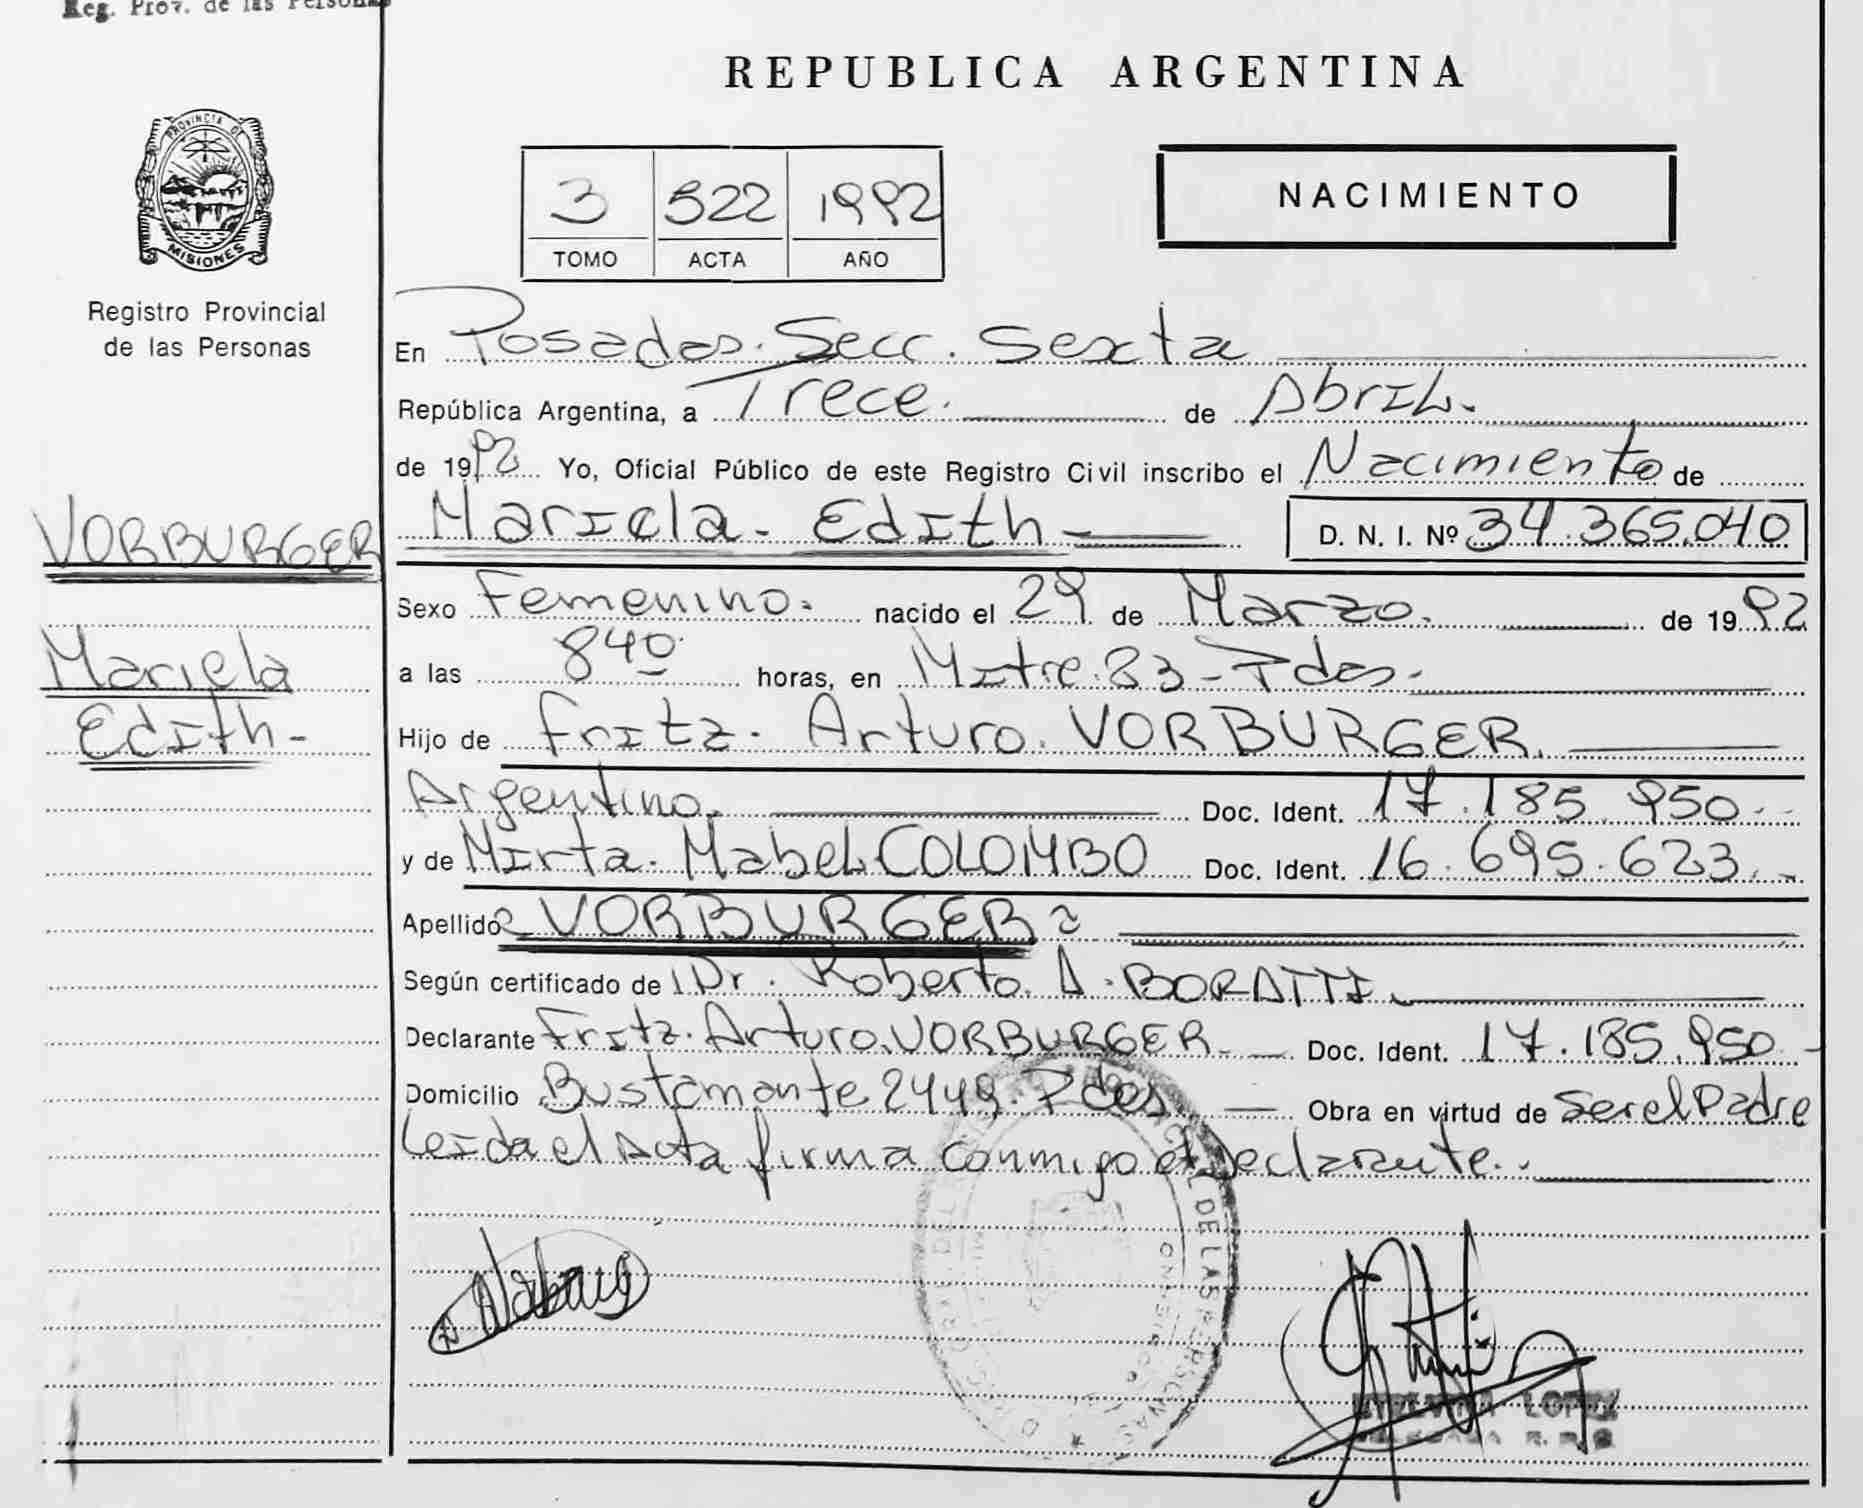 Reg. Prov. de las Personas
REPUBLICA ARGENTINA
PROVINCIA DE
MISIONES
Registro Provincial
de las Personas
3 522 1992
TOMO ACTA AÑO
NACIMIENTO
En Posadas. Secc. Sexta
República Argentina, a Trece. de Abril.
de 1992 Yo, Oficial Público de este Registro Civil inscribo el Nacimiento de
VORBURGER
Mariela
Edith-
Mariela- Edith- D. N. I. Nº 34.365.040
Sexo Femenino. nacido el 29 de Marzo. de 1992
a las 840 horas, en Mitre.83-Pdas.
Hijo de Fritz. Arturo. VORBURGER.
Argentino. Doc. Ident. 17.185.950.
y de Mirta. Mabel COLOMBO Doc. Ident. 16.695.623.
Apellido VORBURGER
Según certificado de Dr. Roberto. A. BORATTI
Declarante Fritz. Arturo. VORBURGER Doc. Ident. 17.185.950
Domicilio Bustamante 2449. Pdas Obra en virtud de Ser el Padre
Leida el Acta firma conmigo el declarante..
DE LAS PERSONAS
LOPEZ